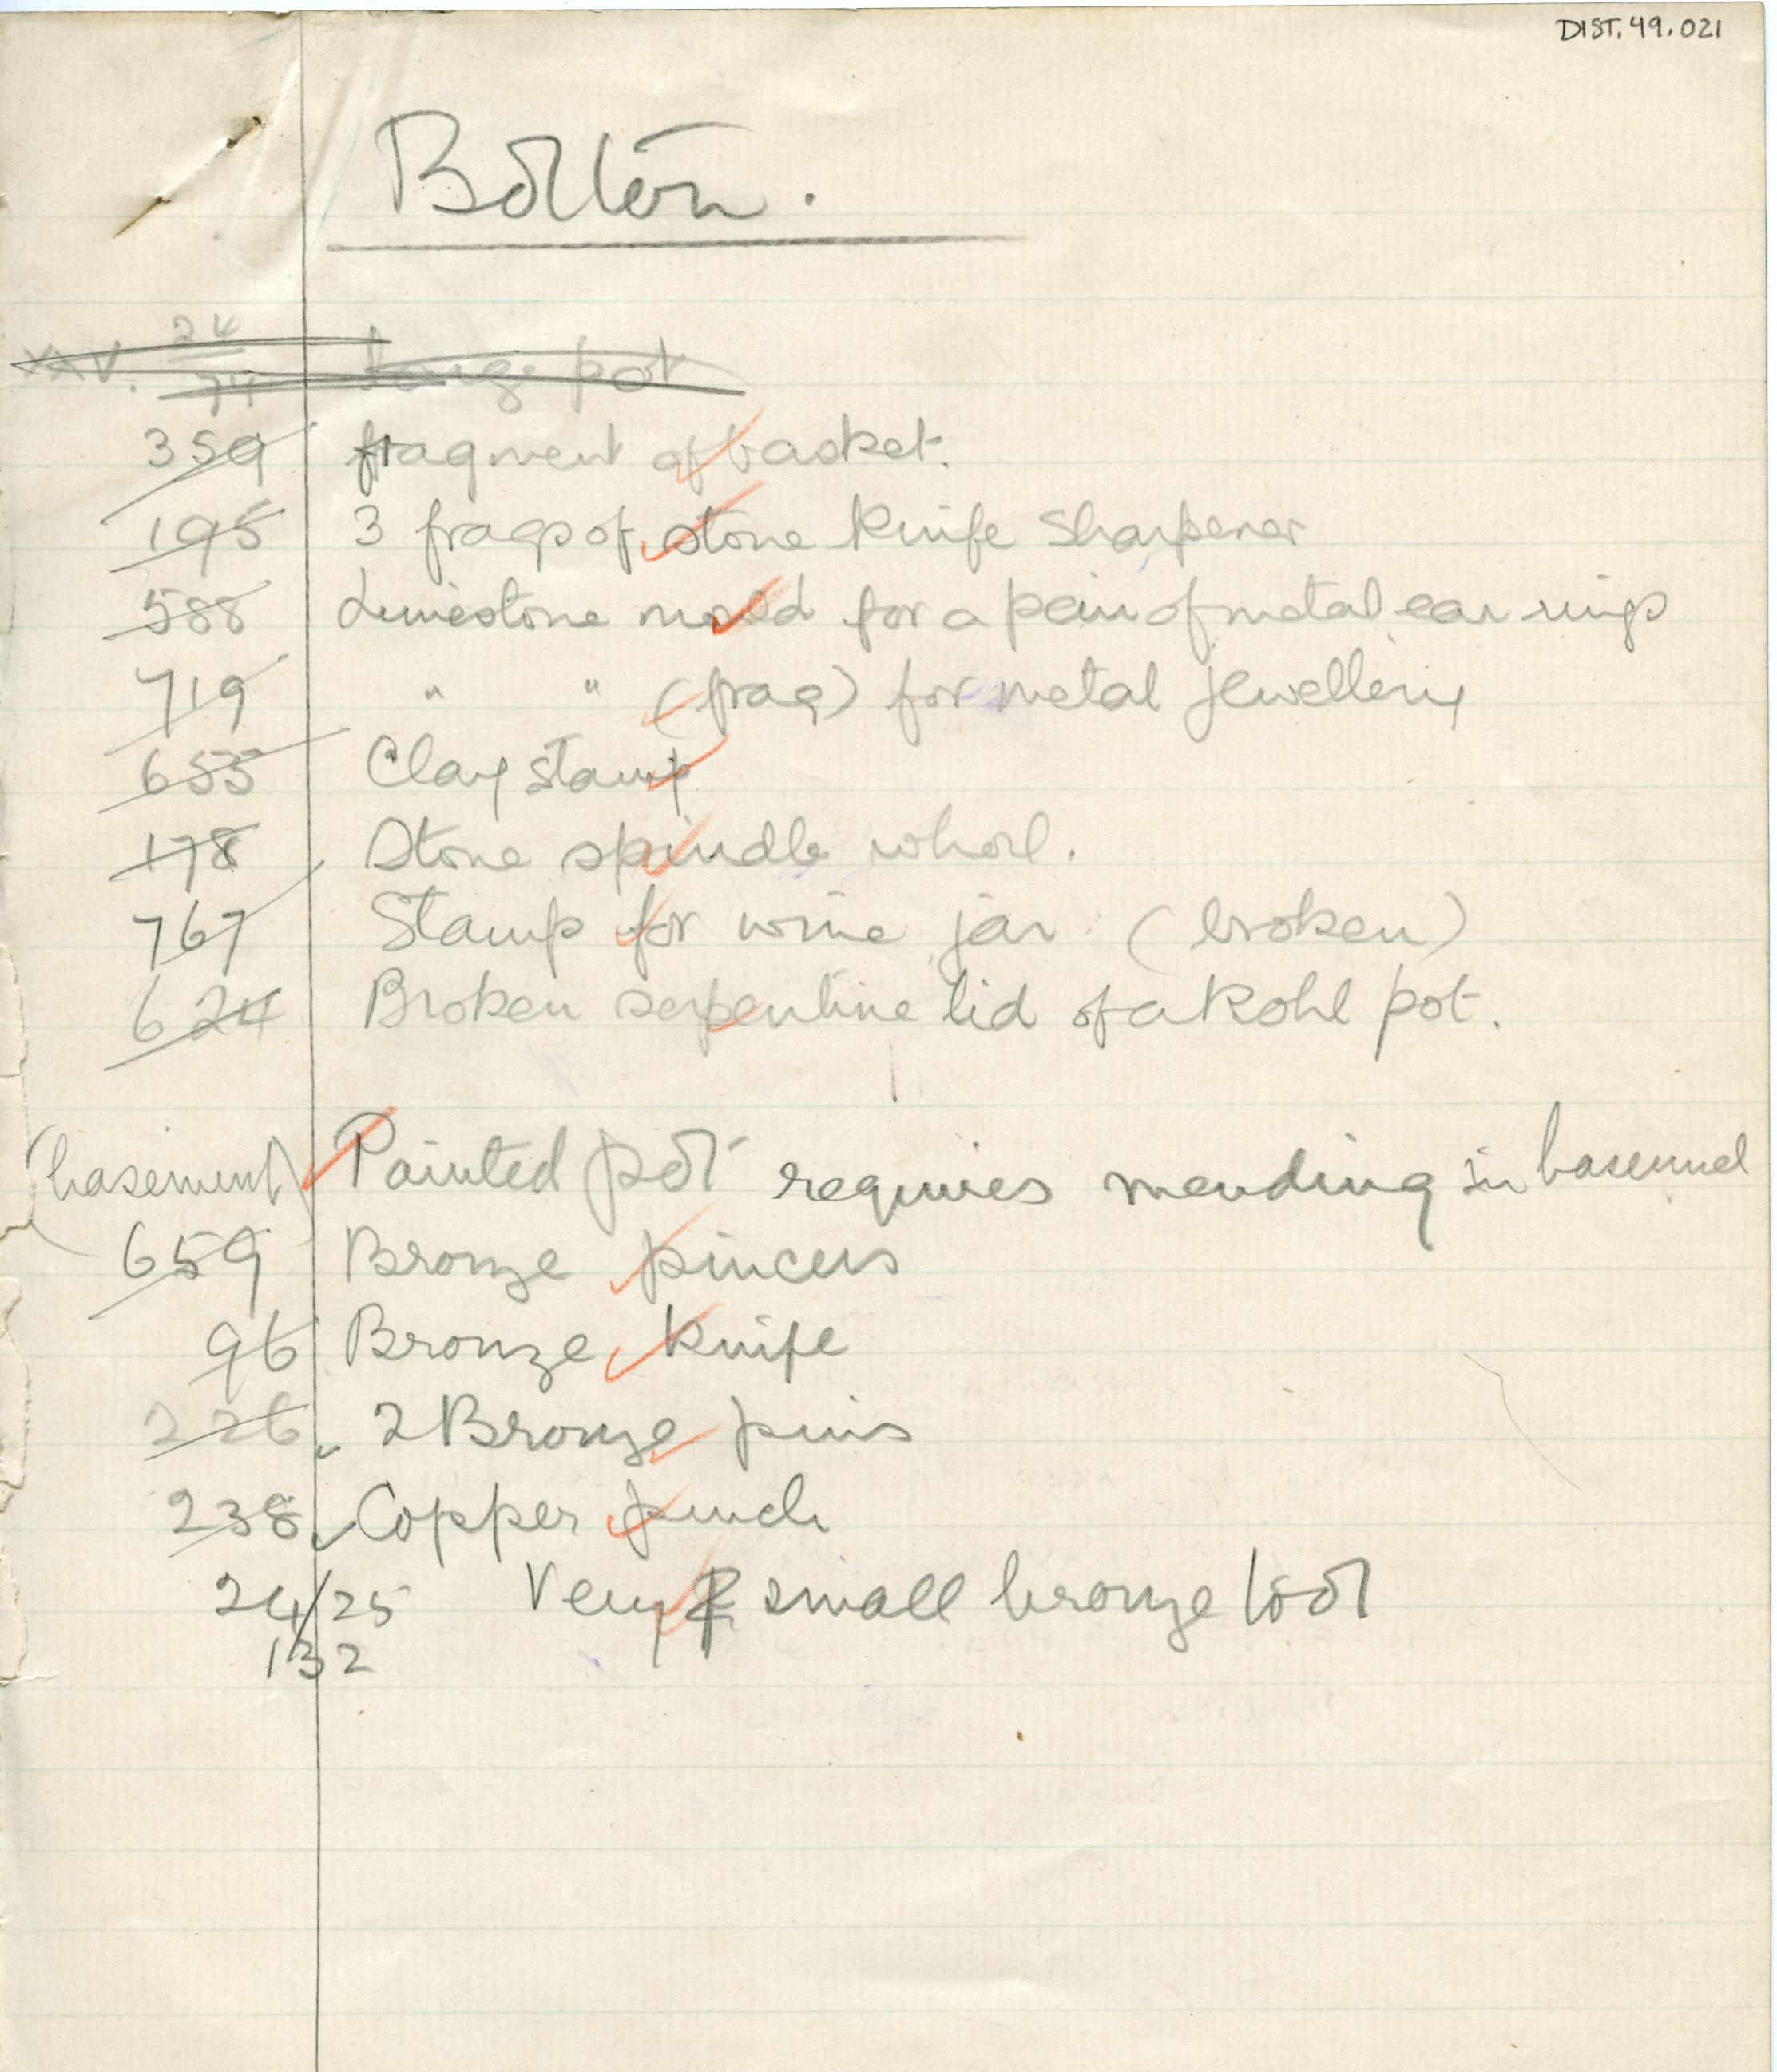 DIST. 49. 021
Bolton.
24
XXV. 74 Large pot
359 fragment of basket.
195 3 frags of stone knife sharpener
588 Limestone mould for a pair of metal ear rings
719 " " (frag) for metal jewellery
653 Clay stamp
178 Stone spindle whorl.
767 Stamp for wine jar (broken)
624 Broken serpentine lid of a Kohl pot.
(basement) Painted pot requires mending in basement
659 Bronze pincers
96 Bronze Knife
226 2 Bronze pins
238 Copper punch
24/25 Very small bronze tool
132